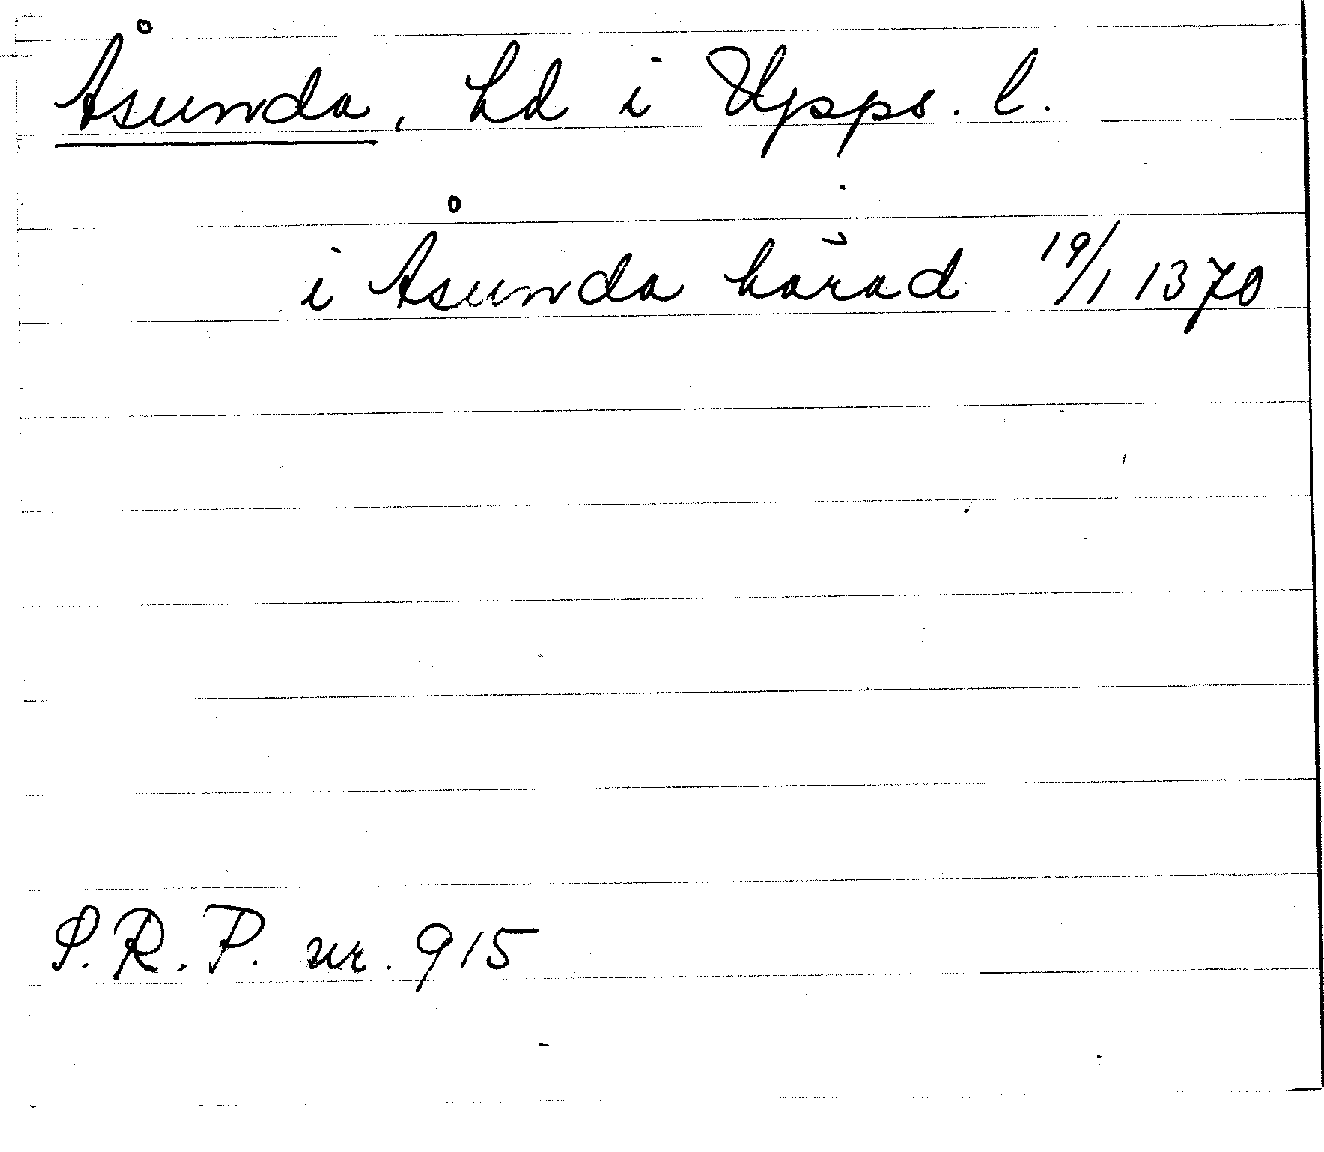 Åsunda, hd i Upps. l.
i Åsunda härad 19/1 1370
S.R.P. nr. 915